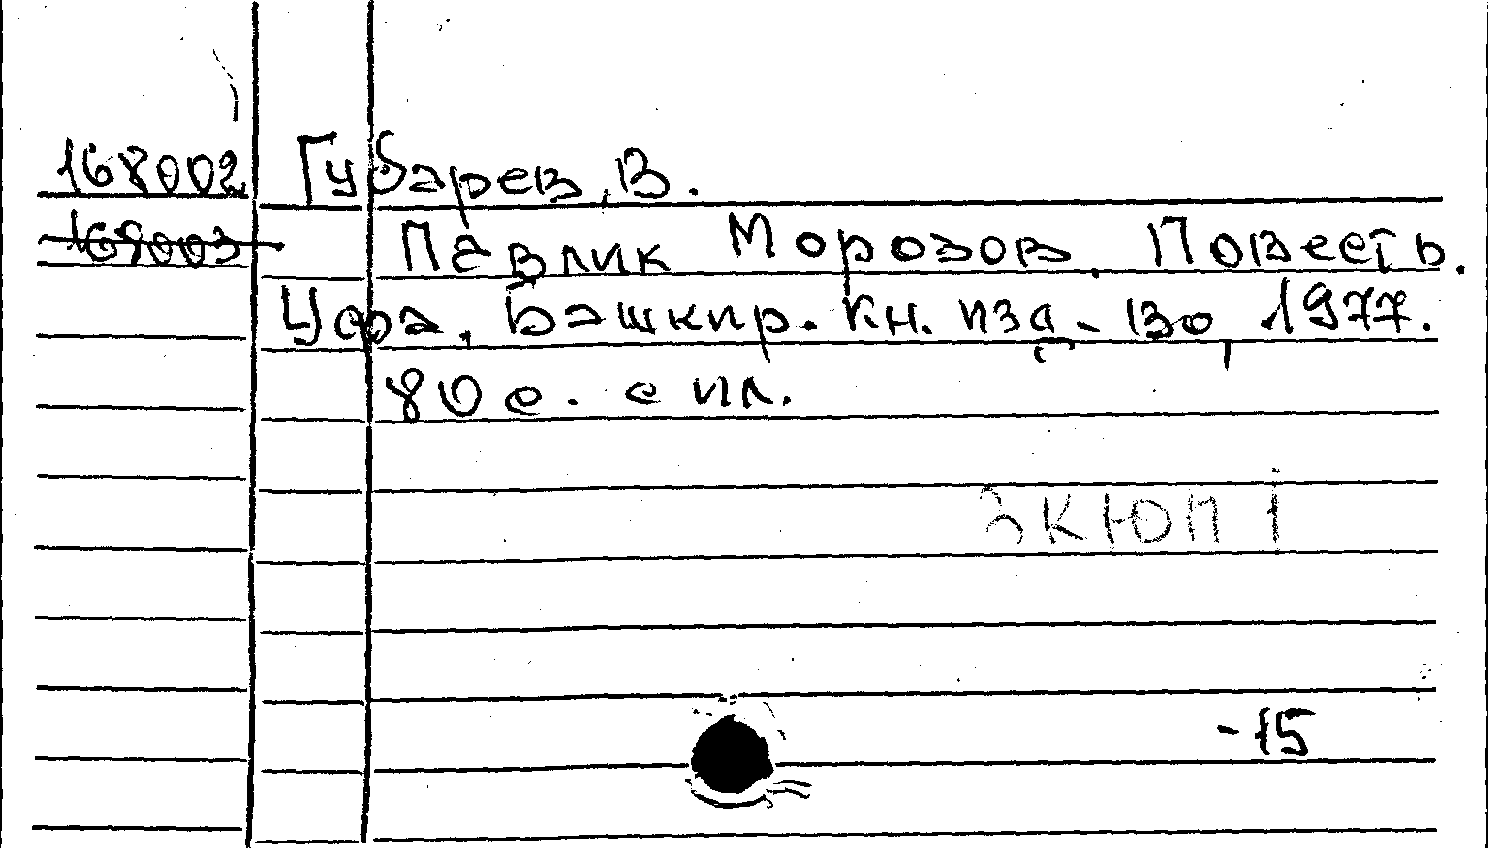 168002 Губарев, В.
168003 Павлик Морозов. Повесть.
Уфа. Башкир. кн. изд-во, 1977.
80 с. с ил.
3 КЮП 1
-15